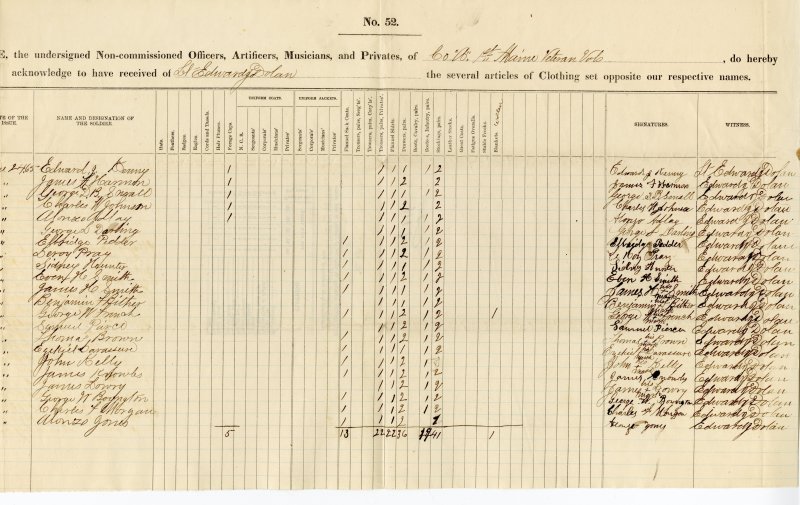 No. 52.
E, the undersigned Non-commissioned Officers, Artificers, Musicians, and Privates, of Co "K" 1st Maine Veteran Vols , do hereby
acknowledge to have received of Lt Edward J Dolan the several articles of Clothing set opposite our respective names.
OF THE ISSUE. NAME AND DESIGNATION OF THE SOLDIER. Hats. Feathers. Bugles. Eagles. Cords and Tassels. Hair Plumes. Forage Caps. UNIFORM COATS. N. C. S. Sergeants' Corporals' Musicians' Privates' UNIFORM JACKETS. Sergeants' Corporals' Musicians' Privates' Flannel Sack Coats. Trousers, pairs, Privates'. Flannel Shirts. Drawers, pairs. Boots, Cavalry, pairs. Bootees, Infantry, pairs. Stockings, pairs. Leather Stocks. Great Coats. Fatigue Overalls. Stable Frocks. Blankets. SIGNATURES. WITNESS.
2 1865 Edward J. Kenny 1 1 1 1 1 2 Edward J Kenny Lt Edward J Dolan
" James F Harmon 1 1 1 2 2 James F Harmon Edward J Dolan
" George B 1 1 1 1 1 2 George Edward J Dolan
" Charles W Johnson 1 1 1 2 2 Charles W Johnson Edward J Dolan
" Alonzo 1 1 1 1 1 2 Alonzo Edward J Dolan
" George L Darling 1 1 1 2 George L Darling Edward J Dolan
" Elbridge Pedler 1 1 1 2 1 2 Elbridge Pedder Edward J Dolan
" Leroy Pray 1 1 1 2 1 2 Le Roy Pray Edward J Dolan
" Sidney Hunter 1 1 1 1 1 2 Sidney Hunter Edward J Dolan
" Eben H Smith 1 1 1 2 1 2 Eben H Smith Edward J Dolan
" James H Smith 1 1 1 1 2 James H Smith Edward J Dolan
" Benjamin 1 1 2 1 2 Benjamin Edward J Dolan
" George W French 1 1 1 2 1 2 1 George W French Edward J Dolan
" Samuel Pierce 1 1 2 1 2 Samuel Pierce Edward J Dolan
" Thomas Brown 1 1 1 2 1 2 Thomas Brown Edward J Dolan
" Ezekiel 1 1 1 2 1 2 Ezekiel Edward J Dolan
" John Kelly 1 1 1 2 1 2 John Kelly Edward J Dolan
" James Knowles 1 1 1 2 1 2 James Knowles Edward J Dolan
" James Lowry 1 1 2 1 2 James Lowry Edward J Dolan
" George W Boynton 1 1 1 2 1 2 George W. Boynton Edward J Dolan
" Charles F Morgan 1 1 1 2 1 2 Charles F Morgan Edward J Dolan
" Alonzo Jones 1 1 1 2 Alonzo Jones Edward J Dolan
5 13 22 22 36 19 41 1